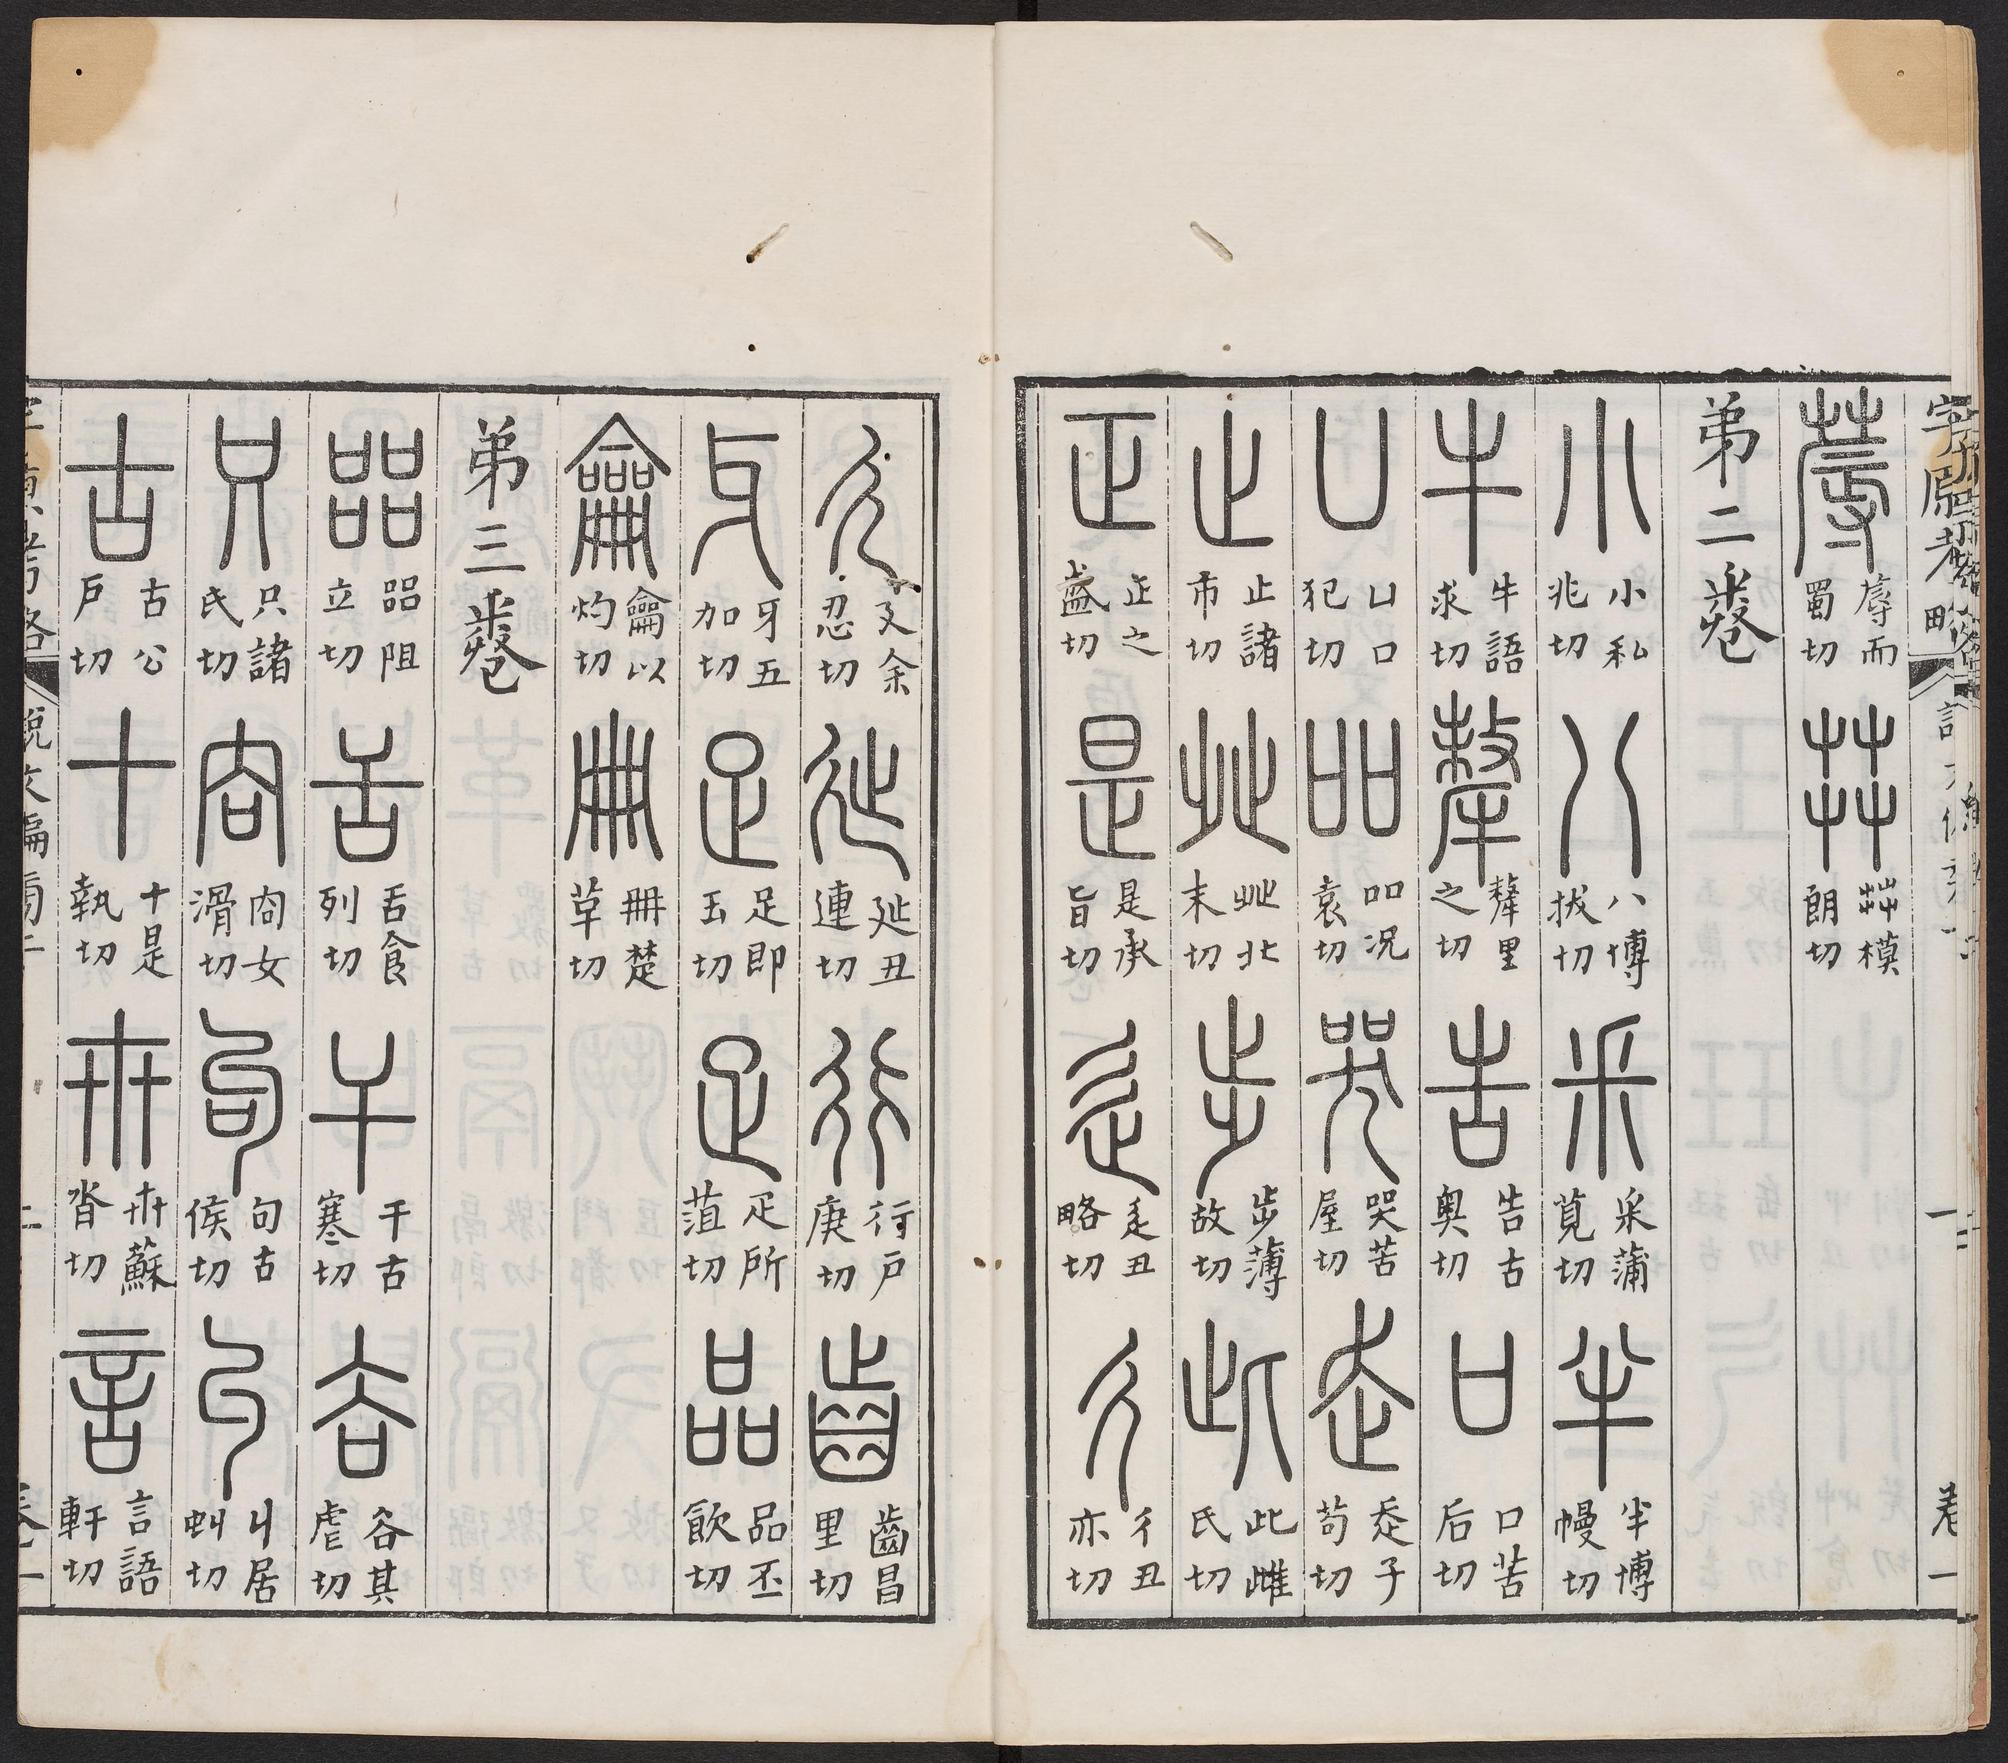 字原考略
卷一
蓐 蓐而蜀切 茻 茻模朗切
弟二卷
小 小私兆切 八 八博拔切 釆 釆蒲莧切 半 半博幔切
牛 牛語求切 犛 犛里之切 告 告古奥切 口 口苦后切
凵 凵口犯切 吅 吅况袁切 哭 哭苦屋切 走 赱子苟切
止 止諸市切 癶 癶北末切 步 步薄故切 此 此雌氏切
正 正之盛切 是 是承旨切 辵 辵丑略切 彳 彳丑亦切
廴 廴余忍切 㢟 㢟丑連切 行 行户庚切 齒 齒昌里切
牙 牙五加切 足 足即玉切 疋 疋所菹切 品 品丕飲切
龠 龠以灼切 冊 冊楚草切
弟三卷
㗊 㗊阻立切 舌 舌食列切 干 干古寒切 谷 谷其虐切
只 只諸氏切 㕯 㕯女滑切 句 句古侯切 丩 丩居虯切
古 古公户切 十 十是執切 卅 卅蘇沓切 言 言語軒切
字原考略 說文偏旁 二 卷一